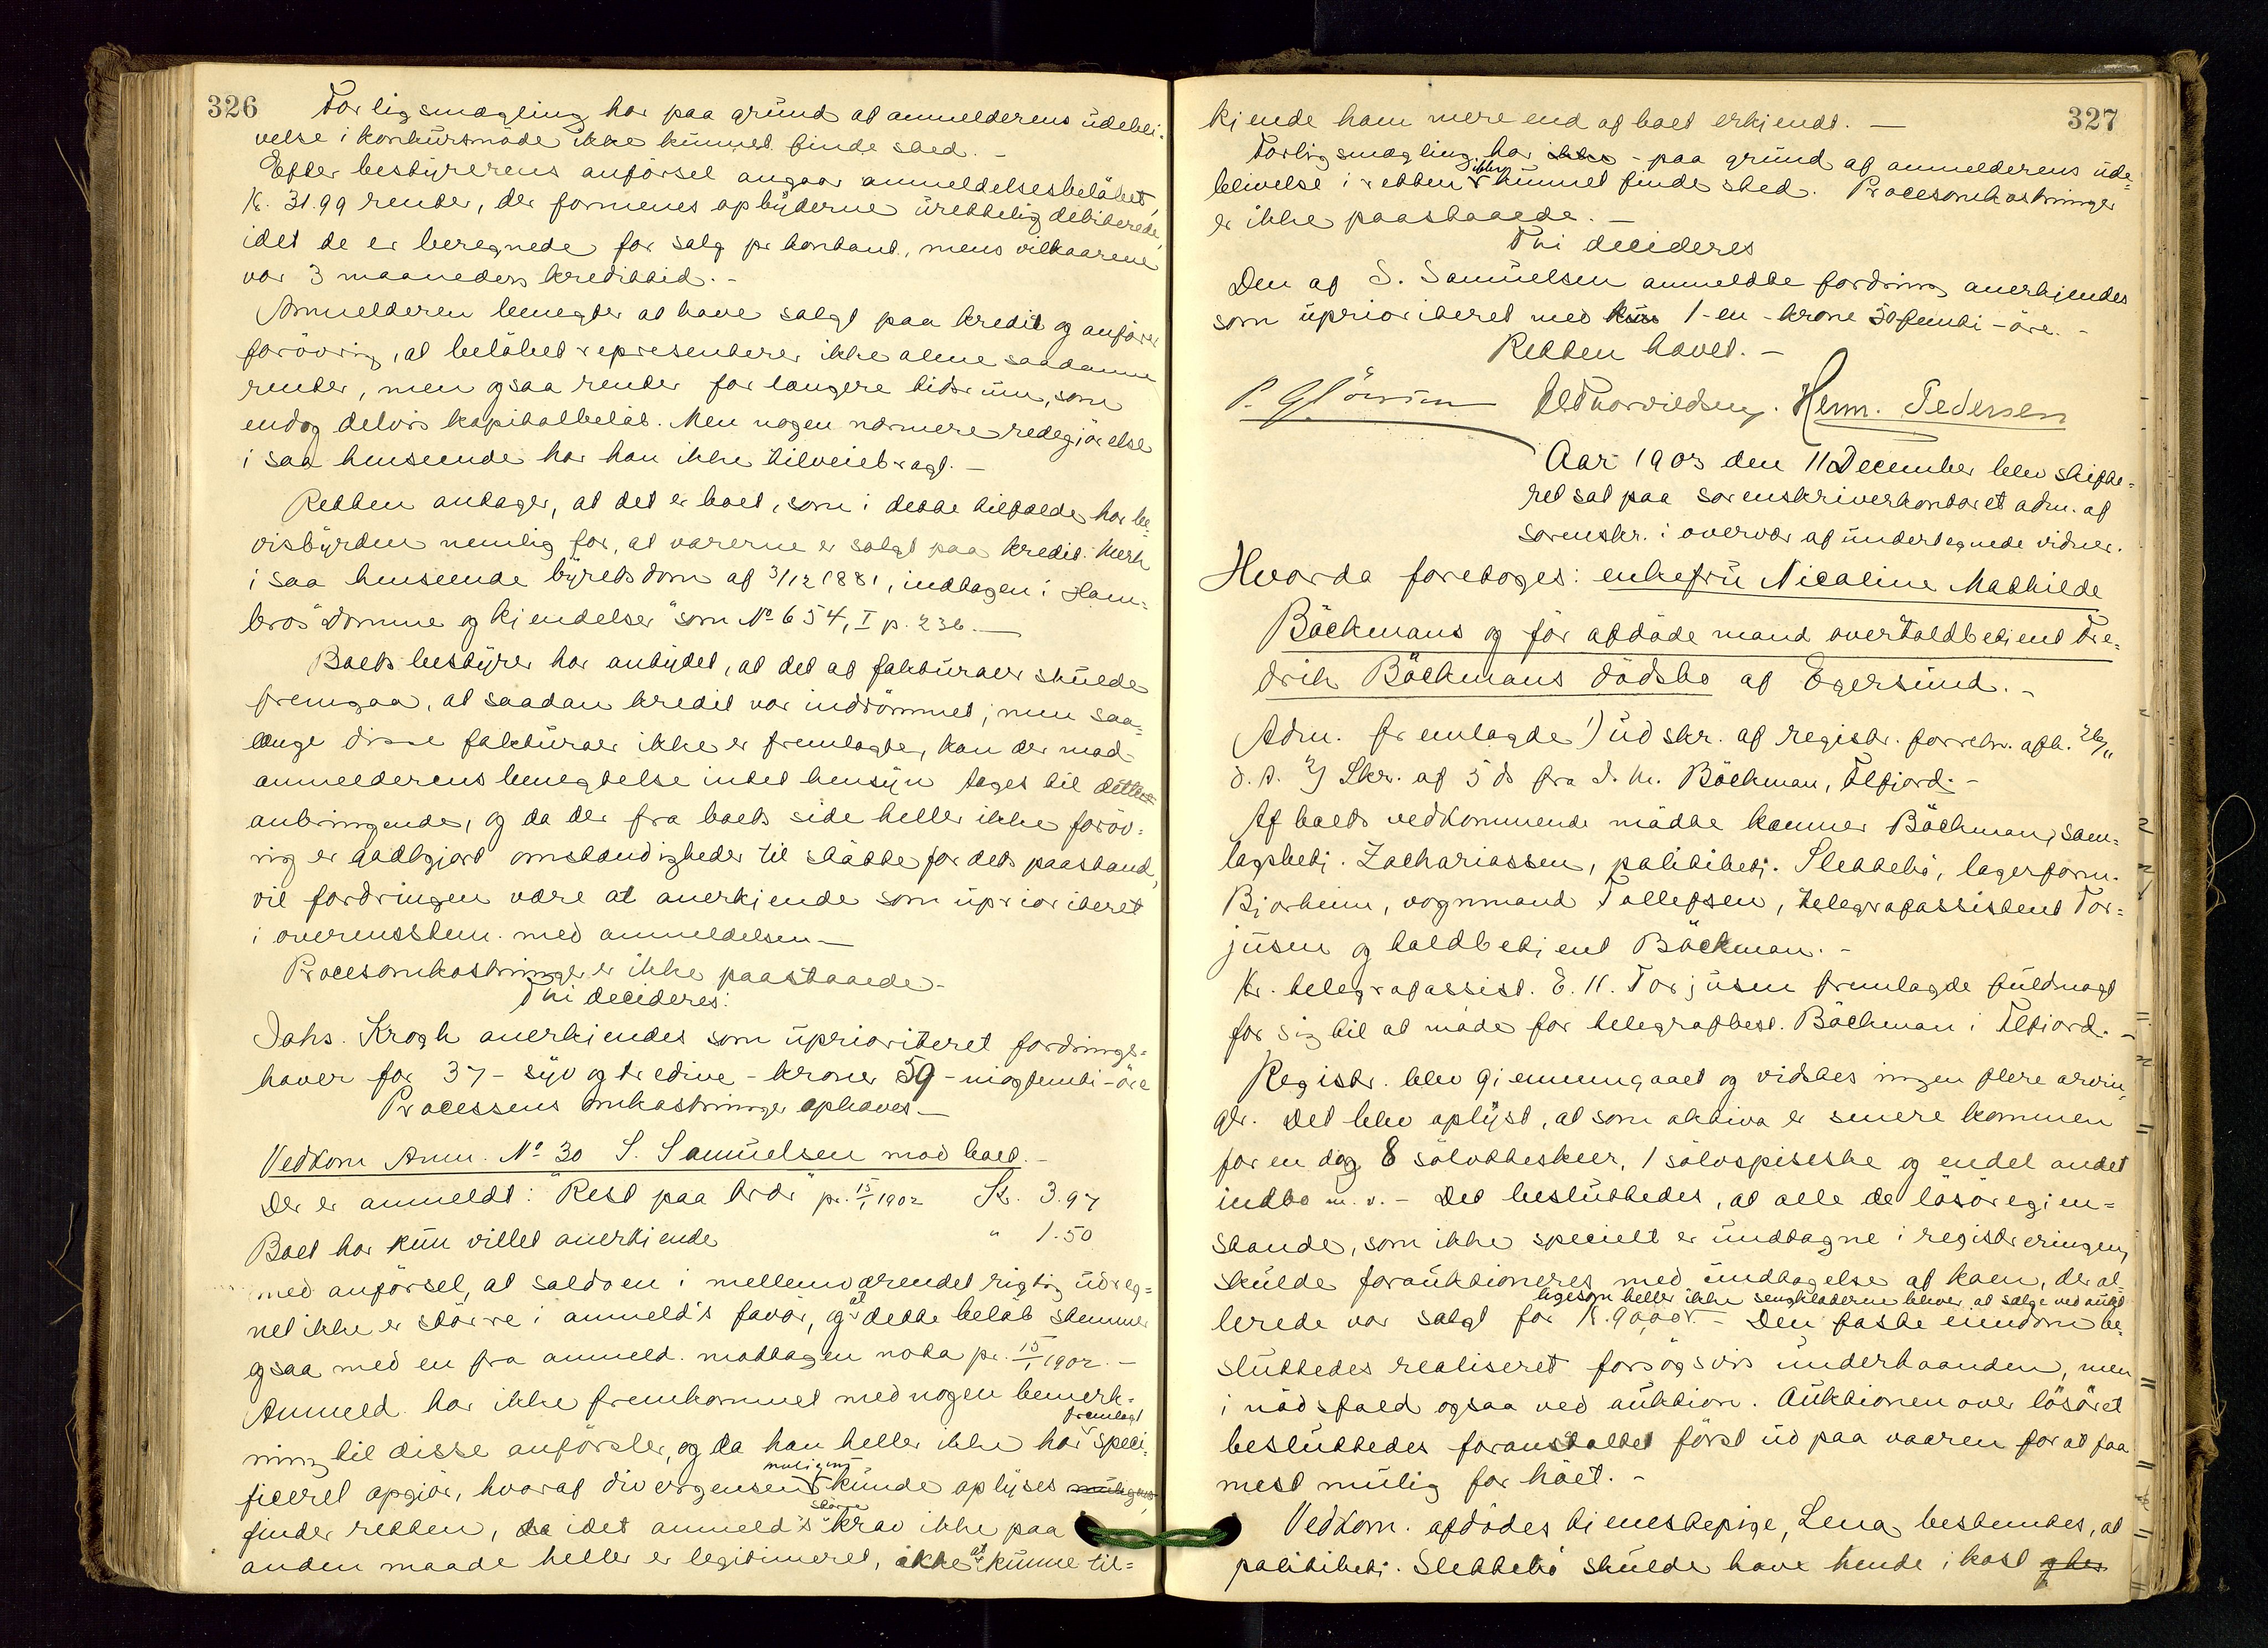 326
Forligsmægling har paa grund af anmelderens udebli-
velse i konkursmøde ikke kunnet finde sted. -
Efter bestyrerens anførsel angaar anmeldelsesbeløbet,
Kr. 31.99 renter, der formenes opbyderne urettelig debiterede,
idet de er beregnede for salg pr kontant, mens vilkaarene
var 3 maaneders kredittid. -
Anmelderen benegter at have solgt paa kredit og anfører
forøvrig, at beløbet representerer ikke alene saadanne
renter, men ogsaa renter for længere tidsrum, som
endog delvis kapitalbeløb. Men nogen nærmere redegjørelse
i saa henseende har han ikke tilveiebragt. -
Retten antager, at det er boet, som i dette tilfælde har be-
visbyrden nemlig for, at varerne er solgt paa kredit. Merk
i saa henseende byretsdom af 3/12 1881, indtagen i Ham-
bros "Domme og kjendelser" som No 654, I p. 236. —
Boets bestyrer har antydet, at det af fakturaer skulde
fremgaa, at saadan kredit var indrømmet; men saa-
længe disse fakturaer ikke er fremlagte, kan der mod
anmelderens benegtelse intet hensyn tages til dette
anbringende, og da der fra boets side heller ikke forøv-
rig er godtgjort omstændigheder til støtte for dets paastand,
vil fordringen være at anerkjende som uprioriteret
i overensstem. med anmeldelsen —
Procesomkostninger er ikke paastaaede -
Thi decideres:
Johs. Krogh anerkjendes som uprioriteret fordrings-
haver for 37 - syv og tredive - kroner 59 - niogfemti - øre
Processens omkostninger ophæves —
Vedkom Anm. No 30 S. Samuelsen mod boet. -
Der er anmeldt: "Rest paa "pr. 15/1 1902 Kr. 3.97
Boet har kun villet anerkjende " 1.50
med anførsel, at saldoen i mellemværendet rigtig udreg-
net ikke er større i anmeld's favør, og at dette beløb stemmer
ogsaa med en fra anmeld. mottagen nota pr. 15/1 1902. -
Anmeld. har ikke fremkommet med nogen bemerk-
ning til disse anførsler, og da han heller ikke har fremlagt speci-
ficeret opgjør, hvoraf divergensen muligens kunde oplyses muligens,
finder retten, da idet anmeld's større krav ikke paa
anden maade heller er legitimeret, ikke at kunne til-
327
kjende ham mere end af boet erkjendt. —
Forligsmægling har ikke - paa grund af anmelderens ude-
blivelse i retten ikke kunnet finde sted. Procesomkostninger
er ikke paastaaede. —
Thi decideres
Den af S. Samuelsen anmeldte fordring anerkjendes
som uprioriteret med kun 1 - en - krone 50 femti - øre. -
Retten hævet. -
Thorvildsen. Herm. Pedersen
Aar 1903 den 11 December blev skifte-
ret sat paa sorenskriverkontoret adm. af
sorenskr. i overvær af undertegnede vidner.
Hvorda foretoges: enkefru Nicoline Mathilde
Böckmans og før afdøde mand overtoldbetjent Fre-
drik Böckmans dødsbo af Egersund. -
Adm. fremlagde 1) udskr. af registr. forretn. afh. 26/11
d. A. 2) Skr. af 5 ds fra J. M. Böckman, Ålfjord. -
Af boets vedkommende mødte kemner Böckman, sam-
lagsbetj. Zachariassen, politibetj. Slettebø, lagerform.
Bjorheim, vognmand Tollefsen, telegrafassistent Tor-
jusen og toldbetjent Böckman. -
Hr. telegrafassist. E. H. Torjusen fremlagde fuldmagt
for sig til at møde for telegrafbest. Böckman i Ålfjord. -
Registr. blev gjennemgaaet og vidstes ingen flere arvin-
ger. Det blev oplyst, at som aktiva er senere kommen
for en dag 8 sølvtheskeer, 1 sølvspiseske og endel andet
indbo m. v. - Det besluttedes, at alle de løsøregjen-
stande, som ikke specielt er undtagne i registreringen,
skulde forauktioneres med undtagelse af koen, der al-
ligesom heller ikke sengklæderne bliver at sælge ved aukt
lerede var solgt for Kr. 90,00. - Den faste eiendom be-
sluttedes realiseret forsøgsvis underhaanden, men
i nødsfald ogsaa ved auktion. Auktionen over løsøret
besluttedes foranstaltet først ud paa vaaren for at faa
mest mulig for høet. -
Vedkom. afdødes tjenestepige, Lena bestemtes, at
politibetj. Slettebø skulde have hende i kost og her